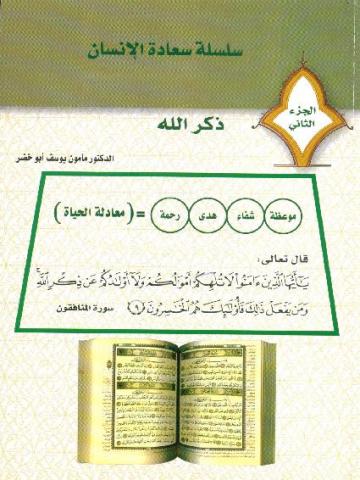 سلسلة سعادة الإنسان
الجزء
الثاني
ذكر الله
الدكتور مأمون يوسف أبو خضر
موعظة شفاء هدى رحمة = ( معادلة الحياة )
قال تعالى:
يَٰٓأَيُّهَا ٱلَّذِينَ ءَامَنُوا۟ لَا تُلْهِكُمْ أَمْوَٰلُكُمْ وَلَآ أَوْلَٰدُكُمْ عَن ذِكْرِ ٱللَّهِ ۚ
وَمَن يَفْعَلْ ذَٰلِكَ فَأُو۟لَٰٓئِكَ هُمُ ٱلْخَٰسِرُونَ ﴿٩﴾ سورة المنافقون